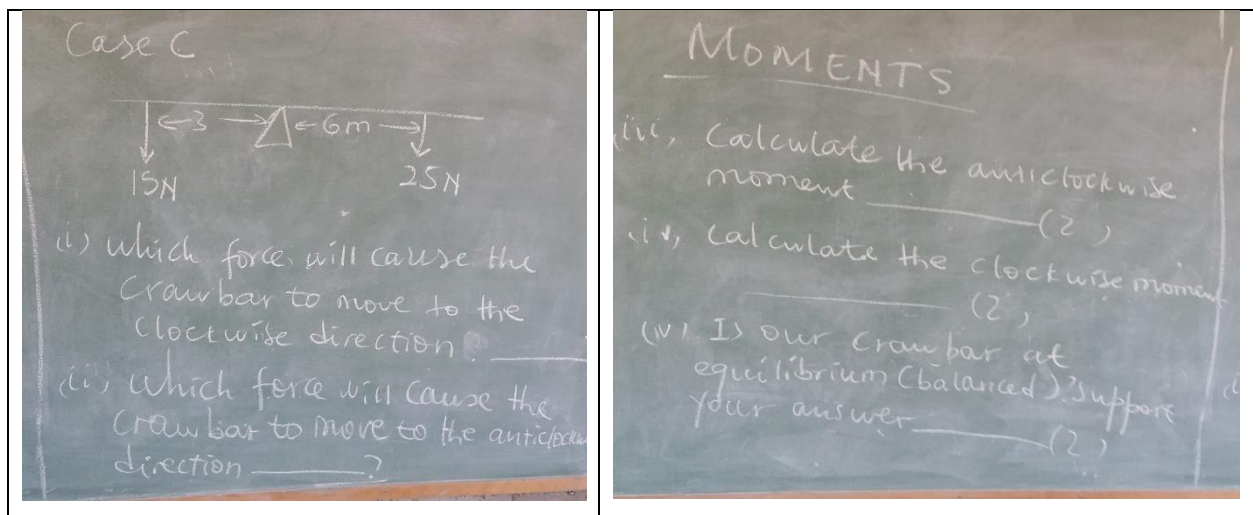 Case C
←3→ ←6m→
15N 25N
(i) which force will cause the
Crawbar to move to the
Clockwise direction?
(ii) Which force will cause the
Crawbar to move to the anticlockw
direction ________?
MOMENTS
(iii) Calculate the anticlockwise
moment ________ (2)
(iv) Calculate the clockwise moment
________ (2)
(v) Is our crawbar at
equilibrium (balanced)? Support
your answer ________ (2)